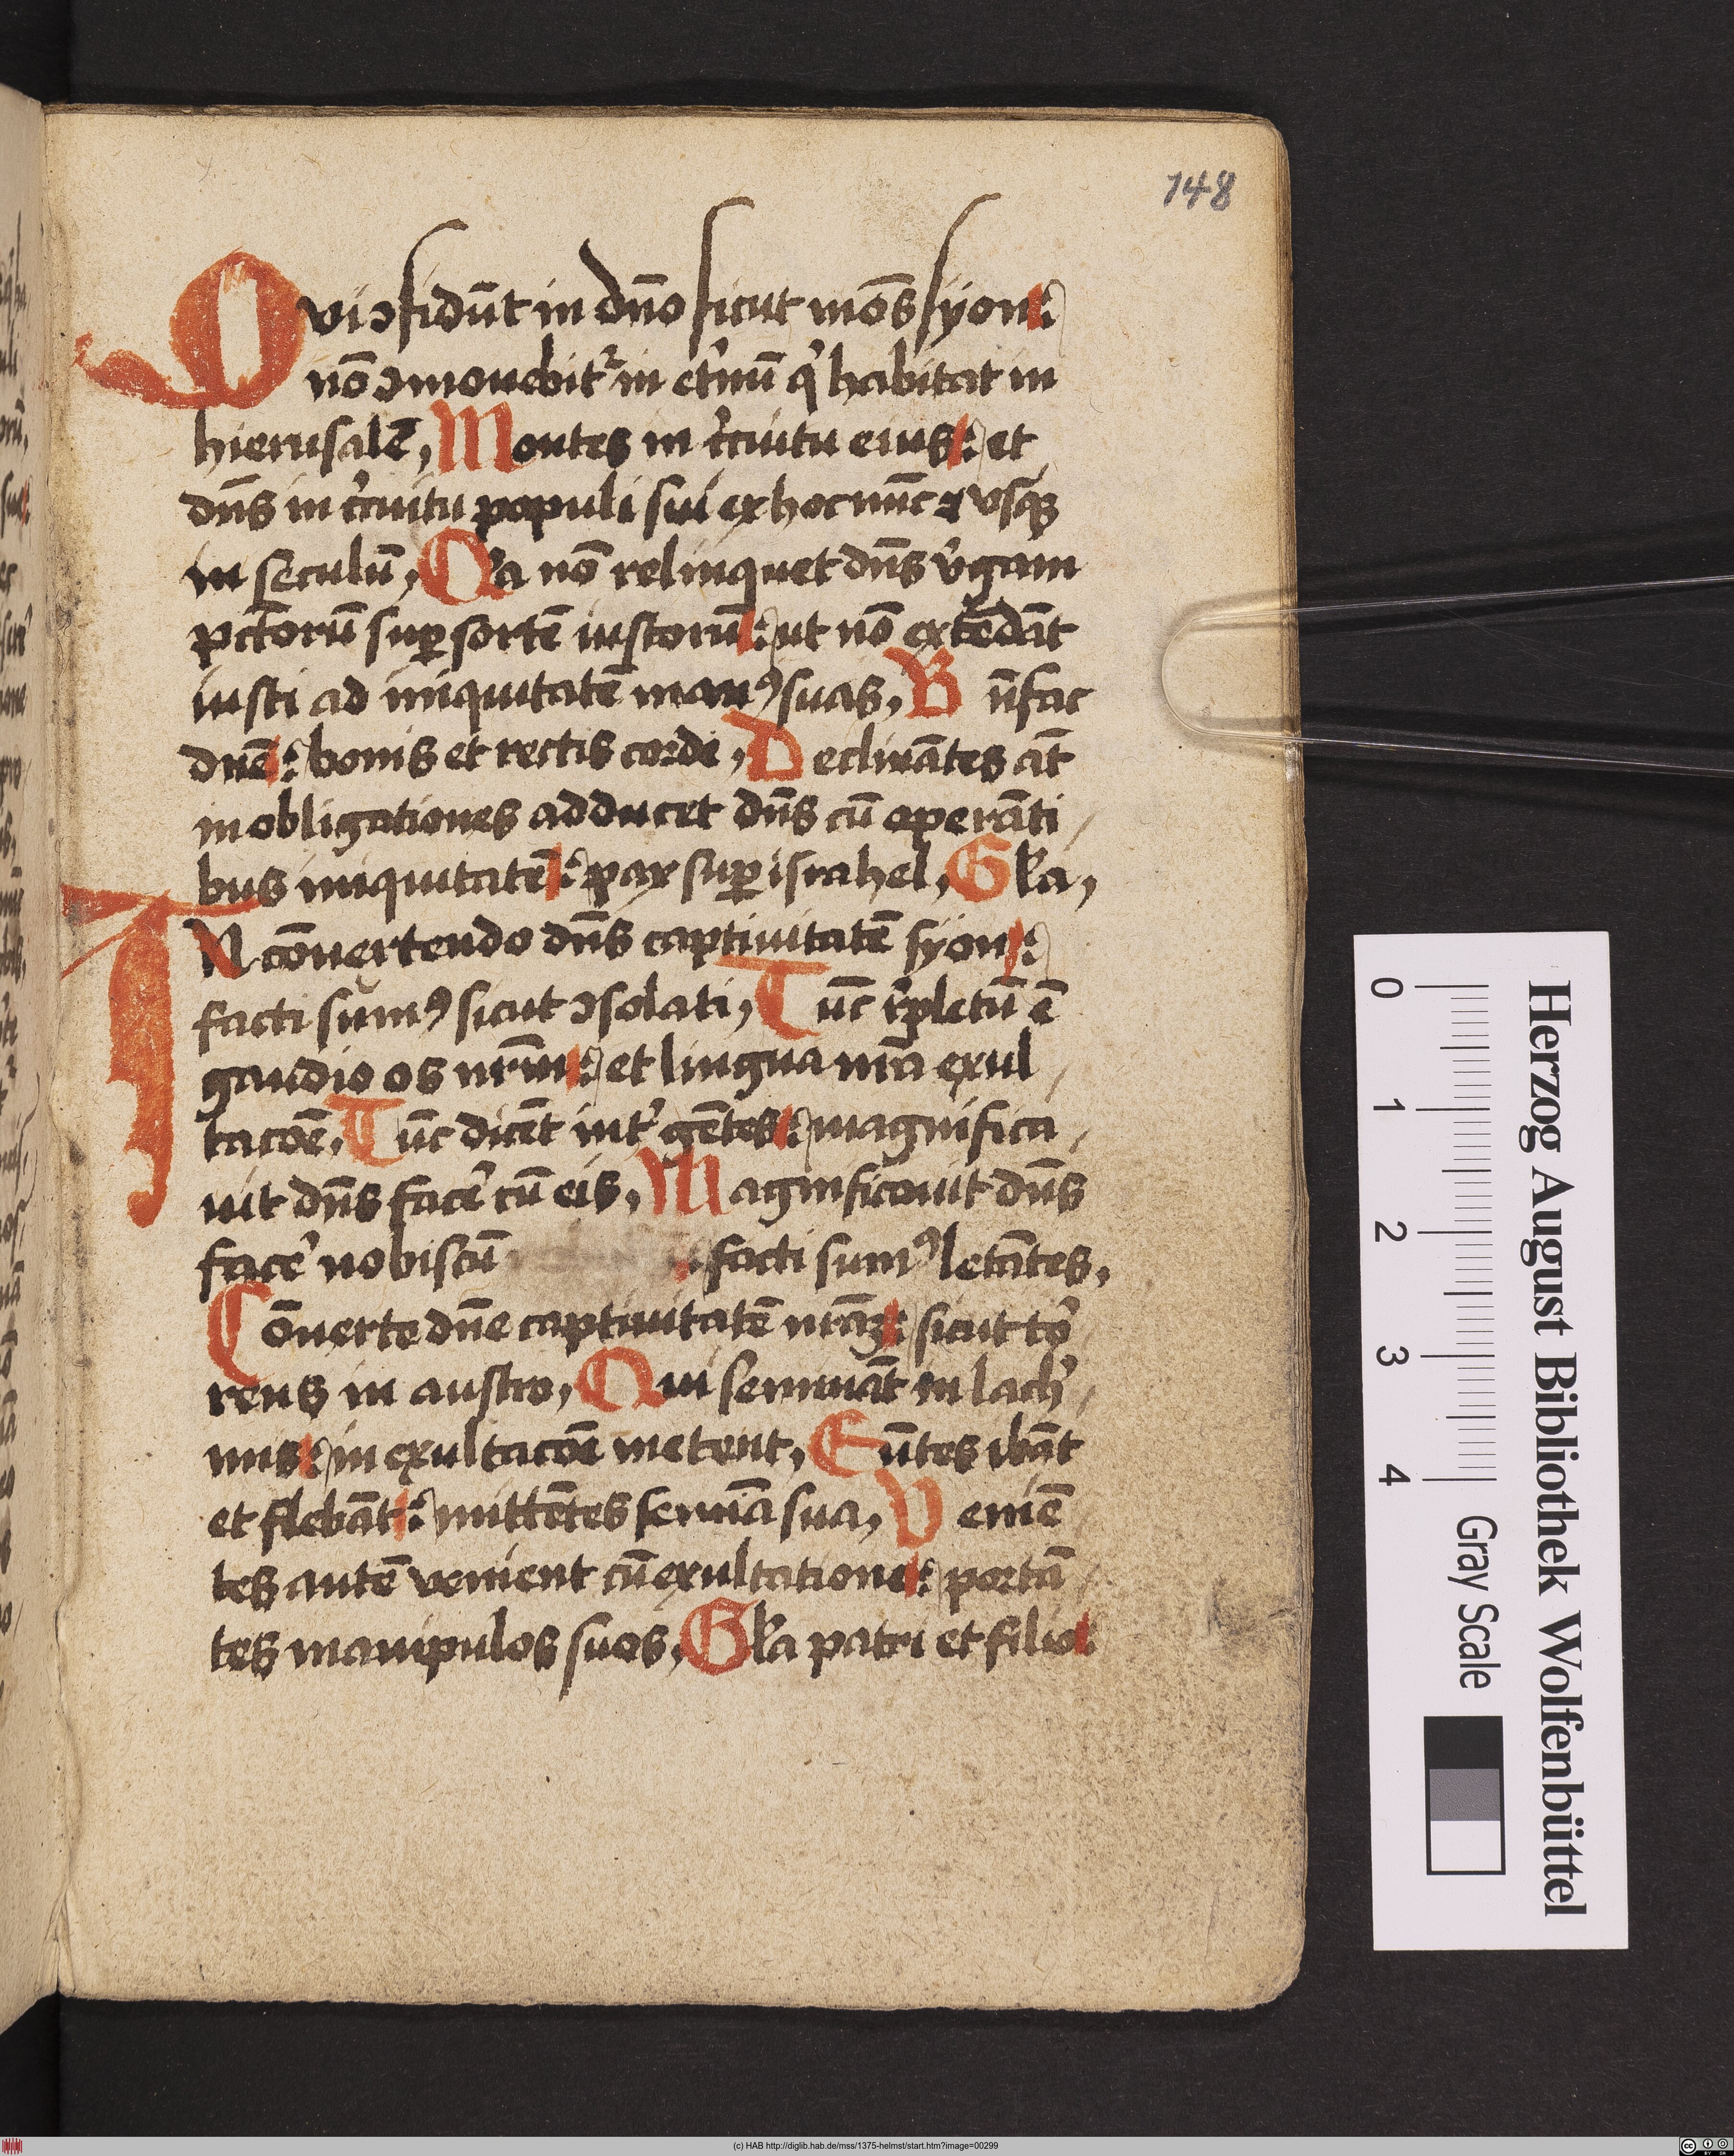 148
Qui ꝯfidūt in dn̄o sicut mōs syon:
nō ꝯmouebit᷑ in et᷑nū q̇ habitat in
hierusalē, Montes in c᷑cuitu eius: et
dn̄s in c᷑cuitu populi sui ex hoc nūc ⁊ vsqꝫ
in seculū, Qꝛa nō relinquet dn̄s v᷑gam
pctōrū suꝑ sortē iustorū: ut nō extēdāt
iusti ad iniquitatē manꝰ suas, Bn̄fac
dn̄e: bonis et rectis corde, Declinātes āt
in obligationes adducet dn̄s cū operāti
bus iniquitatē: pax suꝑ israhel, Gl̄a,
IN cōuertendo dn̄s captiuitatē syon:
facti sumꝰ sicut ꝯsolati, Tūc r᷑pletū ē
gaudio os nr̄m: et lingua nr̄a exul
tacōe, Tūc dicēt int᷑ gētes: magnifica
uit dn̄s face᷑ cū eis, Magnificauit dn̄s
face᷑ nobiscū : facti sumꝰ letātes,
Cōuerte dn̄e captiuitatē nr̄aꝫ: sicut to᷑
rens in austro, Qui semināt in lach᷑
mis: in exultacōe metent, Eūtes ibāt
et flebāt: mittētes semīa sua, Veniē
tes autē venient cū exultatione: portā
tes manipulos suos, Gl̄a patri et filio:
Herzog August Bibliothek Wolfenbüttel
0 1 2 3 4 Gray Scale
(c) HAB http://diglib.hab.de/mss/1375-helmst/start.htm?image=00299